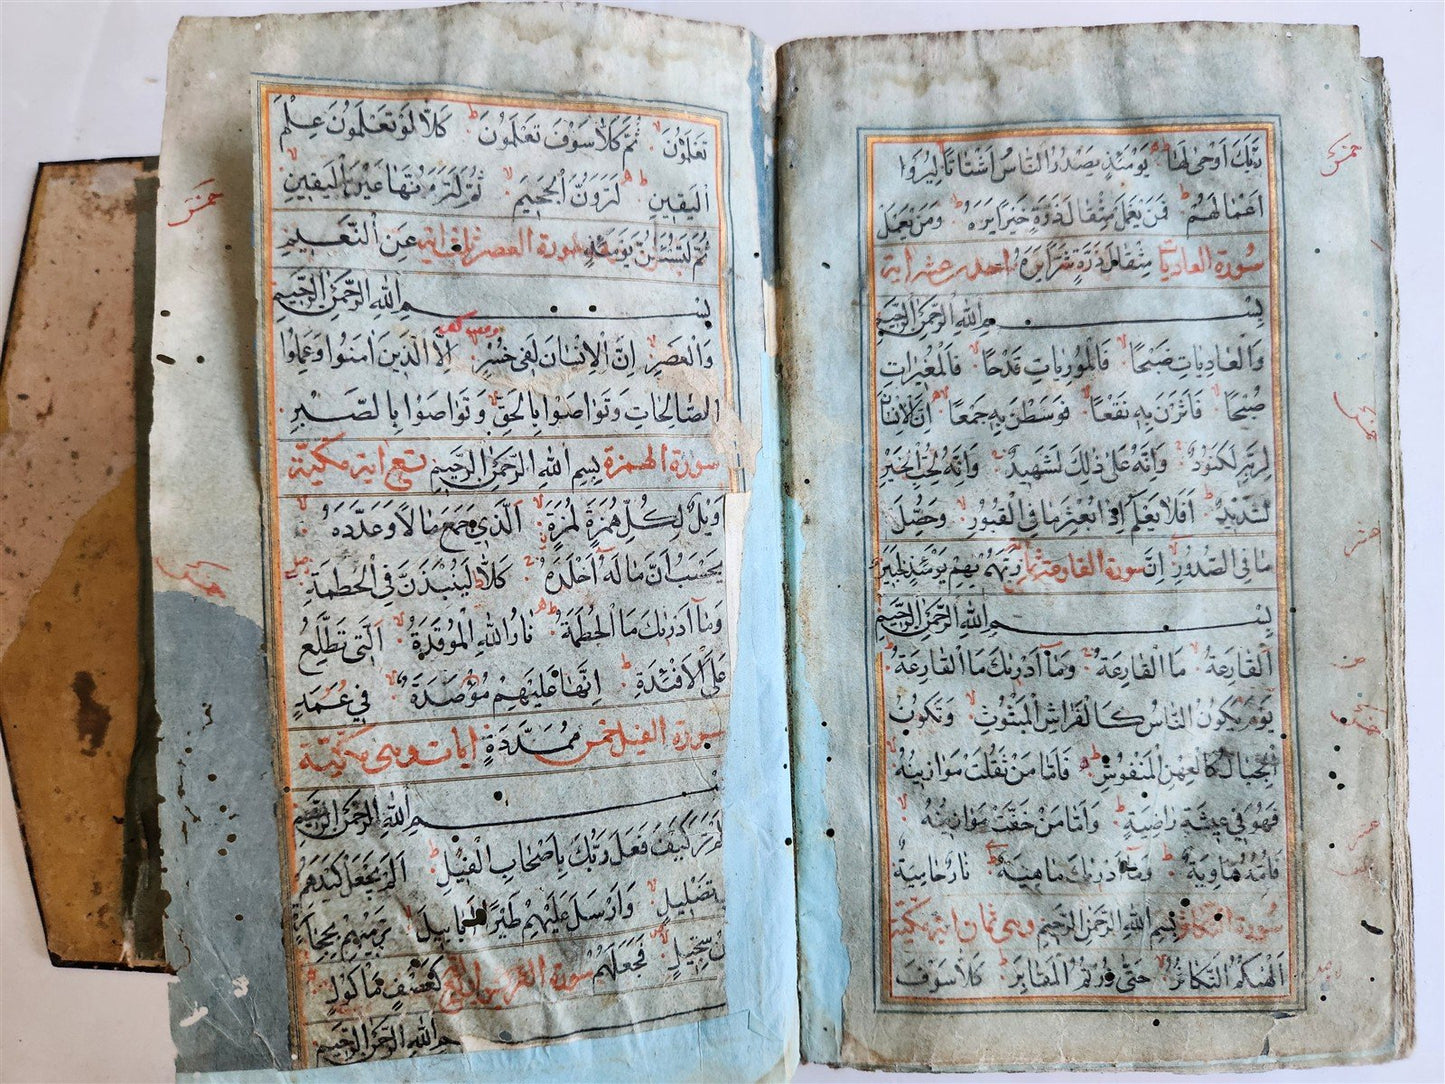 ربك اوحى لها يومئذ يصدر الناس اشتاتا ليروا
اعمالهم فمن يعمل مثقال ذرة خيرا يره ومن يعمل
سورة العاديات مثقال ذرة شرا يره احدى عشر اية
بسم الله الرحمن الرحيم
والعاديات صبحا فالموريات قدحا فالمغيرات
صبحا فاثرن به نقعا فوسطن به جمعا ان الانسان
لربه لكنود وانه على ذلك لشهيد وانه لحب الخير
لشديد افلا يعلم اذا بعثر ما في القبور وحصل
ما في الصدور ان سورة القارعة ربهم بهم يومئذ لخبير
بسم الله الرحمن الرحيم
القارعة ما القارعة وما ادريك ما القارعة
يوم يكون الناس كالفراش المبثوث وتكون
الجبال كالعهن المنفوش فاما من ثقلت موازينه
فهو في عيشة راضية واما من خفت موازينه
فامه هاوية وما ادريك ماهيه نار حامية
سورة التكاثر بسم الله الرحمن الرحيم وهى ثمان اية مكية
الهيكم التكاثر حتى زرتم المقابر كلا سوف
تعلمون ثم كلا سوف تعلمون كلا لو تعلمون علم
اليقين لترون الجحيم ثم لترونها عين اليقين
ثم لتسئلن يومئذ سورة العصر عن النعيم
بسم الله الرحمن الرحيم
والعصر ان الانسان لفى خسر الا الذين امنوا وعملوا
الصالحات وتواصوا بالحق وتواصوا بالصبر
سورة الهمزة بسم الله الرحمن الرحيم تسع اية مكية
ويل لكل همزة لمزة الذي جمع مالا وعدده
يحسب ان ماله اخلده كلا لينبذن في الحطمة
وما ادريك ما الحطمة نار الله الموقدة التى تطلع
على الافئدة انها عليهم مؤصدة في عمد
سورة الفيل خمس ممددة ايات وهى مكية
بسم الله الرحمن الرحيم
الم تر كيف فعل ربك باصحاب الفيل الم يجعل كيدهم
في تضليل وارسل عليهم طيرا ابابيل ترميهم بحجارة
من سجيل فجعلهم سورة القريش كعصف ماكول
بسم الله الرحمن الرحيم